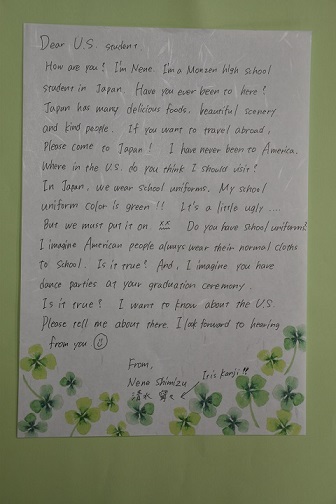 Dear U.S. student
How are you? I'm Nene. I'm a Monzen high school
student in Japan. Have you ever been to here?
Japan has many delicious foods, beautiful scenery
and kind people. If you want to travel abroad,
Please come to Japan! I have never been to America.
Where in the U.S. do you think I should visit?
In Japan, we wear school uniforms. My school
uniform color is green!! It's a little ugly ....
But we must put it on Do you have school uniform?
I imagine American people always wear their normal cloths
to school. Is it true? And, I imagine you have
dance parties at your graduation ceremony.
Is it true? I want to know about the U.S.
Please tell me about there. I look forward to hearing
from you
From,
Nene Shimizu
清水 寧々
Its Kanji!!